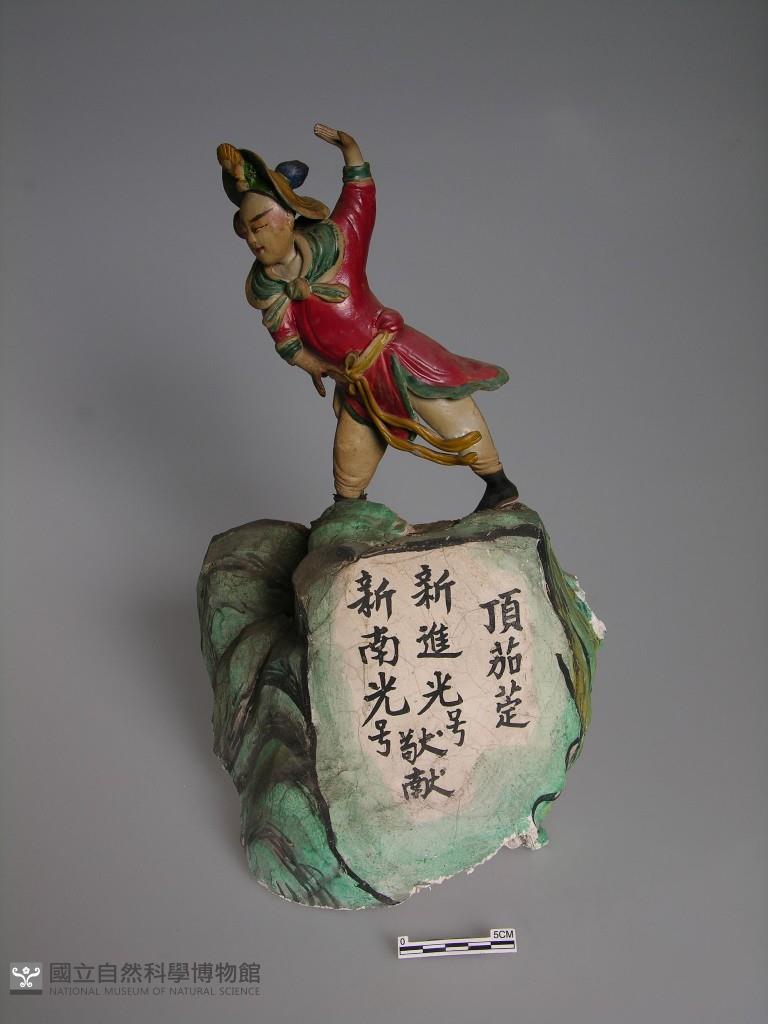 頂茄萣
新進光号
新南光号
敬献
0 5CM
國立自然科學博物館
NATIONAL MUSEUM OF NATURAL SCIENCE